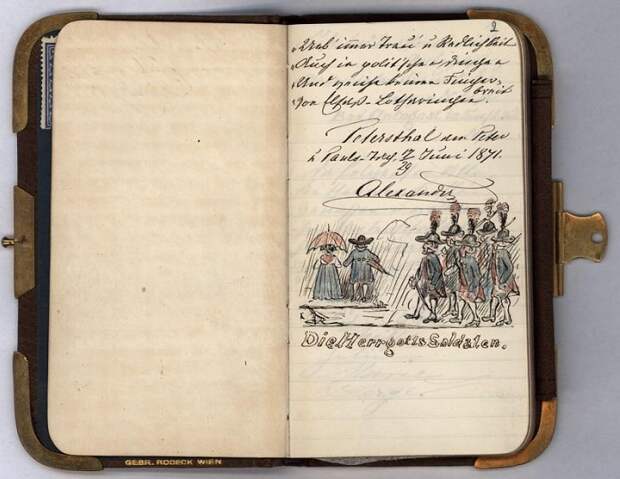 2
„Ueb' immer Treu u Redlichkeit
„Auch in politschen dingen
„Und weiche keinen Finger-
breit
„von Elsaß-Lotharingen.
Petersthal am Peter
u Pauls-Tag, 17/29 Juni 1871.
Alexander
Die Herrgotts Soldaten.
GEBR. RODECK WIEN